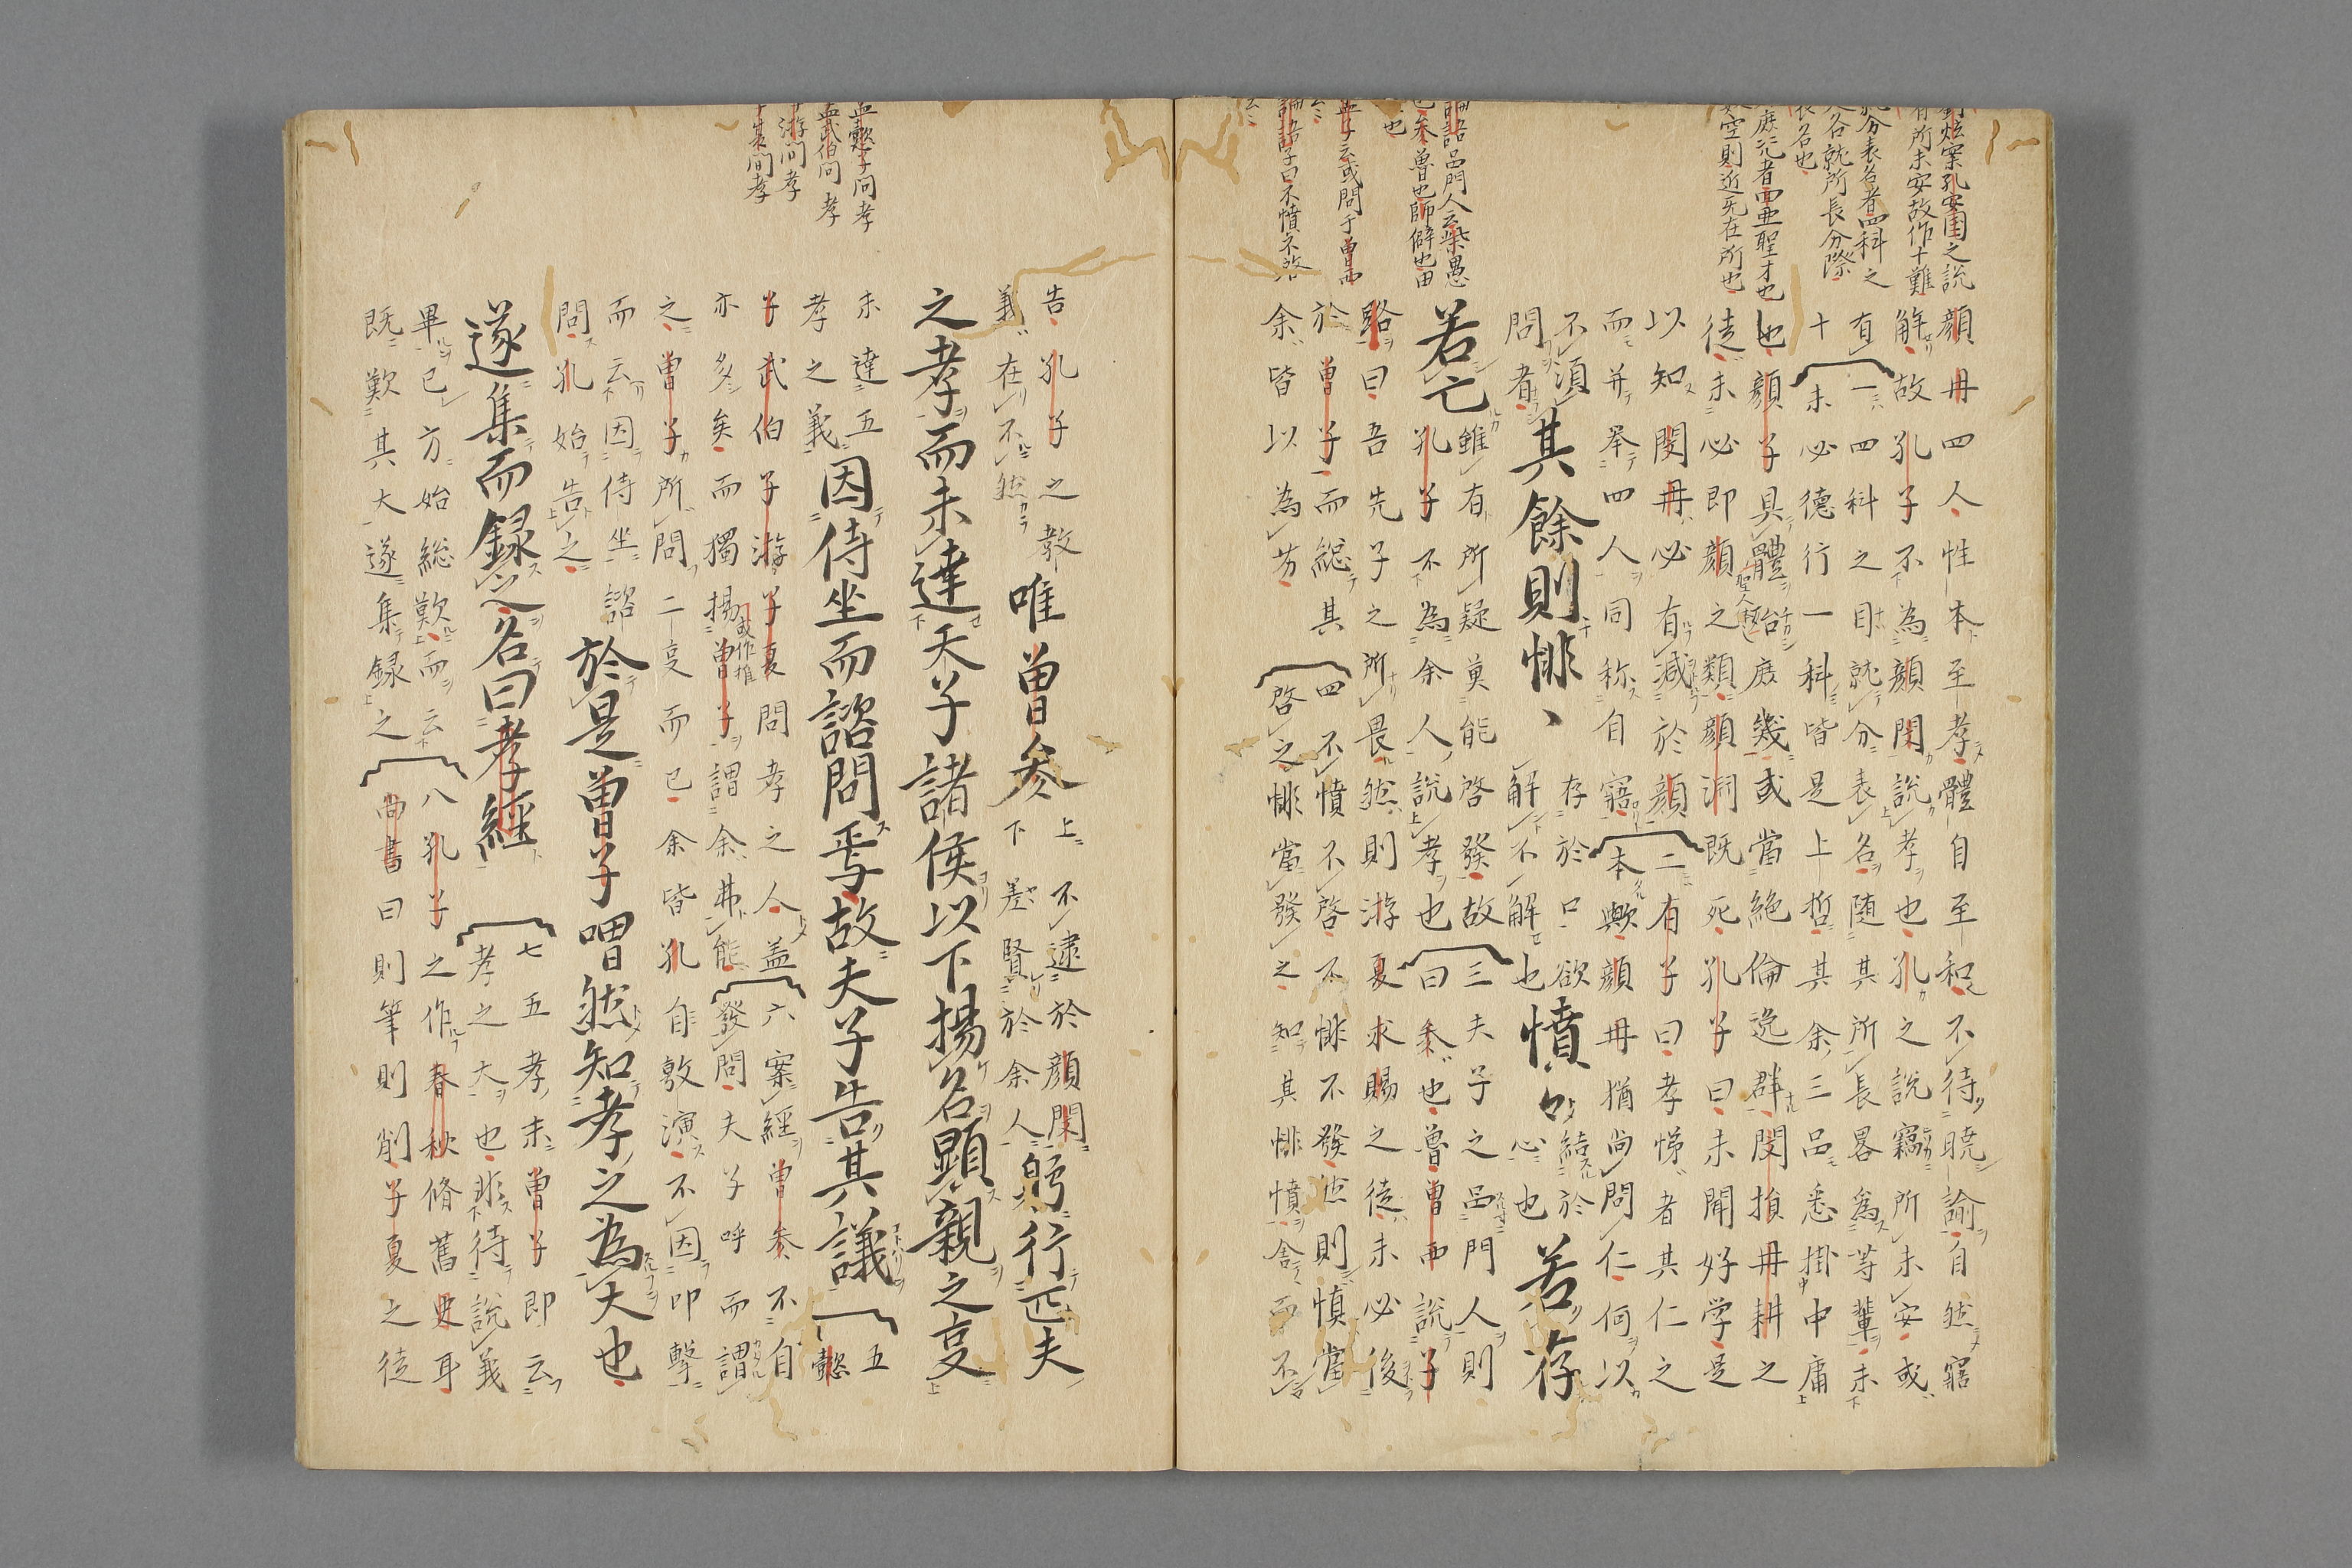 顔冉四人性本至孝體自至和不待曉諭自然寤
解故孔子不為顔閔說孝也孔之說竊所未安或
有一四科之目就分表名随其所長畧為等輩未
十未必德行一科皆是上哲其余三品悉掛中庸
也顔子具體殆庶幾或當絶倫逸群閔損冉耕之
徒未必即顔之類顔淵既死孔子曰未聞好学是
以知閔冉必有減於顔二有子曰孝悌者其仁之
而并举四人同称自寤本歟顔冉猶尚問仁何以
不須
問者
其餘則悱〻
存於口欲
解不解也
憤〻
結於
心也
若存
若亡
雖有所疑莫能啓發故三夫子之品門人則
孔子不為余人說孝也曰参也魯曽西說子
路曰吾先子之所畏然則游夏求賜之徒未必後
於曽子而総其四不憤不啓不悱不發然則慎當
余皆以為劣啓之悱當發之知其悱憤舍而不
告孔子之教
義在不然
唯曽参
上不逮於顔閔
下差賢於余人
躬行匹夫
之孝而未達天子諸侯以下揚名顕親之㕝
未達五
孝之義
因侍坐而諮問焉故夫子告其議
五
懿
子武伯子游子夏問孝之人盖六案經曽参不自
亦多矣而獨揚曽子謂余弗能發問夫子呼而謂
之曽子所問二㕝而已余皆孔自敷演不因叩擊
而云因侍坐諮
問孔始告之
於是曽子喟然知孝之為大也
遂集而録之名曰孝經
七五孝未曽子即云
孝之大也非待說義
畢已方始総歎而云八孔子之作春秋脩舊史耳
既歎其大遂集録之尚書曰則筆則削子夏之徒
炫案孔安国之說
有所未安故作十難
分表名者四科之
各就所長分際
表名也
庶幾者亜聖才也
空則近死在所也
語品門人云柴愚
也参魯也師僻也由
也
孟子云或問于曽西
云〻
論語子曰不憤不啓
云〻
孟懿子問孝
孟武伯問孝
子游問孝
子夏問孝
聖人
或作推